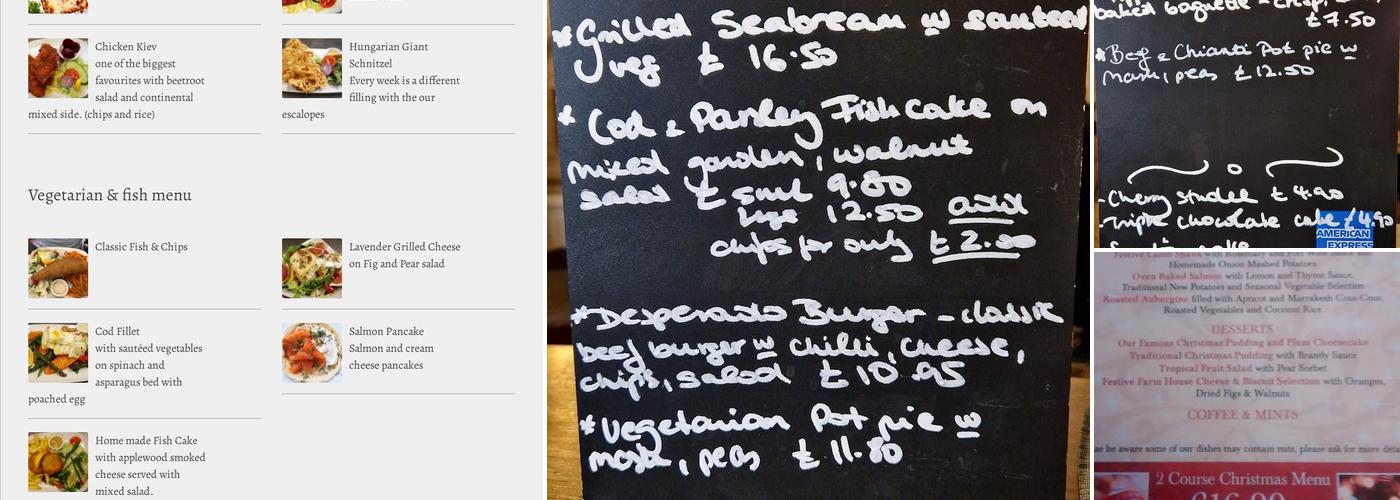 Chicken Kiev
one of the biggest
favourites with beetroot
salad and continental
mixed side. (chips and rice)
Hungarian Giant
Schnitzel
Every week is a different
filling with the our
escalopes
Vegetarian & fish menu
Classic Fish & Chips
Lavender Grilled Cheese
on Fig and Pear salad
Cod Fillet
with sautéed vegetables
on spinach and
asparagus bed with
poached egg
Salmon Pancake
Salmon and cream
cheese pancakes
Home made Fish Cake
with applewood smoked
cheese served with
mixed salad.
*Grilled Seabream w sauteed
veg £ 16.50
* Cod & Parsley Fishcake on
mixed garden, walnut
salad £ small 9.80
large 12.50 add
chips for only £ 2.50
*Desperado Burger - classic
beef burger w chilli, cheese,
chips, salad £ 10.95
*Vegetarian Pot pie w
mash, peas £ 11.80
baked baguette - crisp,
£7.50
*Beef & Chianti Pot pie w
mash, peas £ 12.50
-Cherry strudel £ 4.90
-Triple chocolate cake £4.90
cake
AMERICAN
EXPRESS
Festive Lamb Shank with Rosemary and Port Wine Sauce
Homemade Onion Mashed Potatoes
Oven Baked Salmon with Lemon and Thyme Sauce,
Traditional New Potatoes and Seasonal Vegetable Selection
Roasted Aubergine filled with Apricot and Marrakesh Cous Cous,
Roasted Vegetables and Coconut Rice
DESSERTS
Our Famous Christmas Pudding and Plum Cheesecake
Traditional Christmas Pudding with Brandy Sauce
Tropical Fruit Salad with Pear Sorbet
Festive Farm House Cheese & Biscuit Selection with Oranges,
Dried Figs & Walnuts
COFFEE & MINTS
be aware some of our dishes may contain nuts, please ask for more
2 Course Christmas Menu